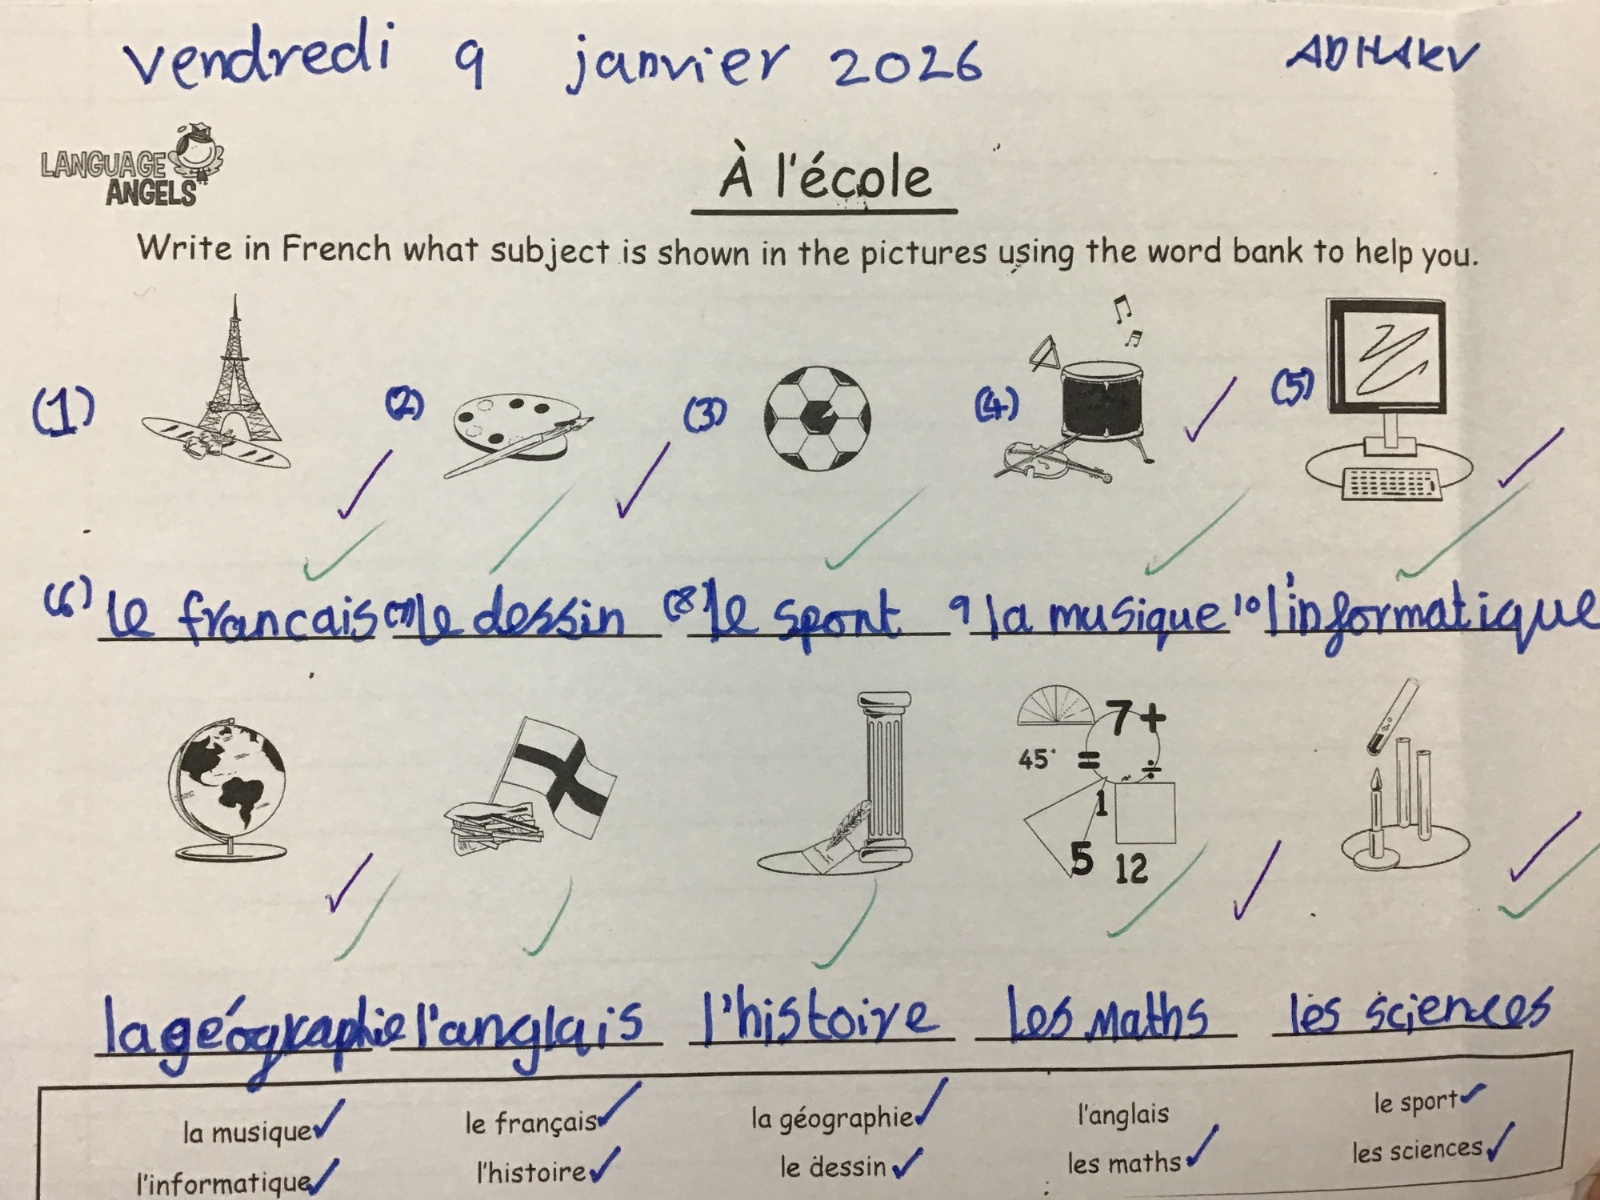 vendredi 9 janvier 2026 ADHARV
LANGUAGE
ANGELS
À l'école
Write in French what subject is shown in the pictures using the word bank to help you.
(1) (2) (3) (4) (5)
(6) le francais (7) le dessin (8) le spont 9 la musique 10 l'informatique
7+
45° = ÷
1
5 12
la géographie l'anglais l'histoire les maths les sciences
la musique le français la géographie l'anglais le sport
l'informatique l'histoire le dessin les maths les sciences